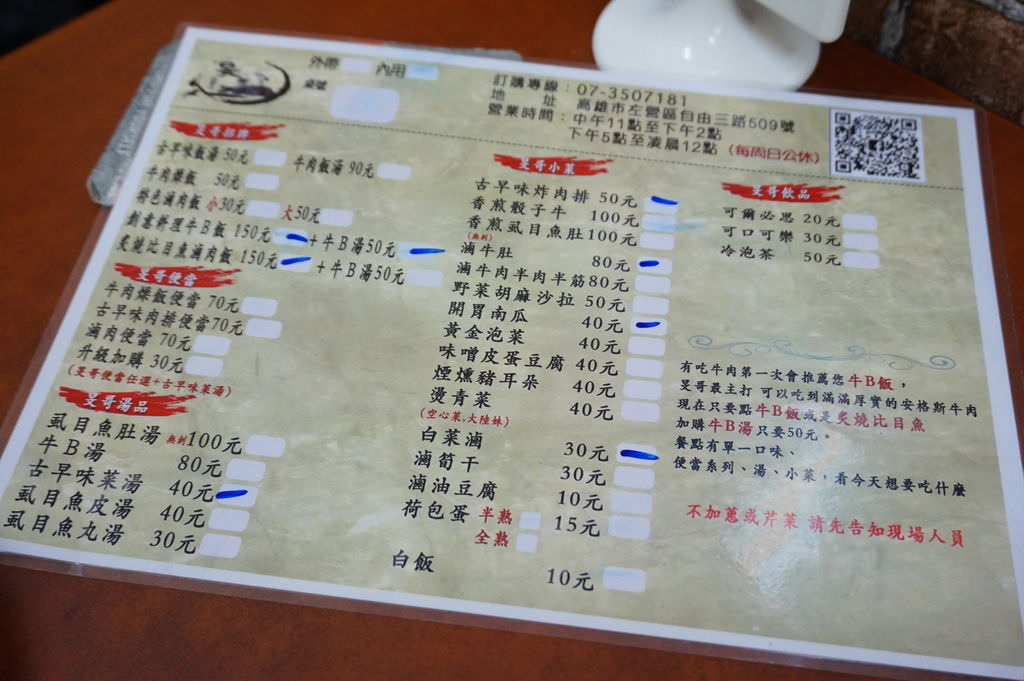 外帶 內用
桌號
訂購專線：07-3507181
地 址：高雄市左營區自由三路509號
營業時間：中午11點至下午2點
下午5點至凌晨12點 (每周日公休)
旻哥招牌
古早味飯湯 50元 牛肉飯湯 90元
牛肉燥飯 50元
特色滷肉飯 小30元 大50元
創意料理牛B飯 150元 +牛B湯50元
炙燒比目魚滷肉飯 150元 +牛B湯50元
旻哥便當
牛肉燥飯便當 70元
古早味肉排便當70元
滷肉便當 70元
升級加購 30元
(旻哥便當任選+古早味菜湯)
旻哥湯品
虱目魚肚湯 無刺100元
牛B湯 80元
古早味菜湯 40元
虱目魚皮湯 40元
虱目魚丸湯 30元
旻哥小菜
古早味炸肉排 50元
香煎骰子牛 100元
香煎虱目魚肚100元
(無刺)
滷牛肚 80元
滷牛肉半肉半筋80元
野菜胡麻沙拉 50元
開胃南瓜 40元
黃金泡菜 40元
味噌皮蛋豆腐 40元
煙燻豬耳朵 40元
燙青菜 40元
(空心菜,大陸妹)
白菜滷 30元
滷筍干 30元
滷油豆腐 10元
荷包蛋 半熟 15元
全熟
白飯 10元
旻哥飲品
可爾必思 20元
可口可樂 30元
冷泡茶 50元
有吃牛肉第一次會推薦您牛B飯，
旻哥最主打 可以吃到滿滿厚實的安格斯牛肉
現在只要點牛B飯或是炙燒比目魚
加購牛B湯只要50元。
餐點有單一口味、
便當系列、湯、小菜，看今天想要吃什麼
不加蔥或芹菜 請先告知現場人員